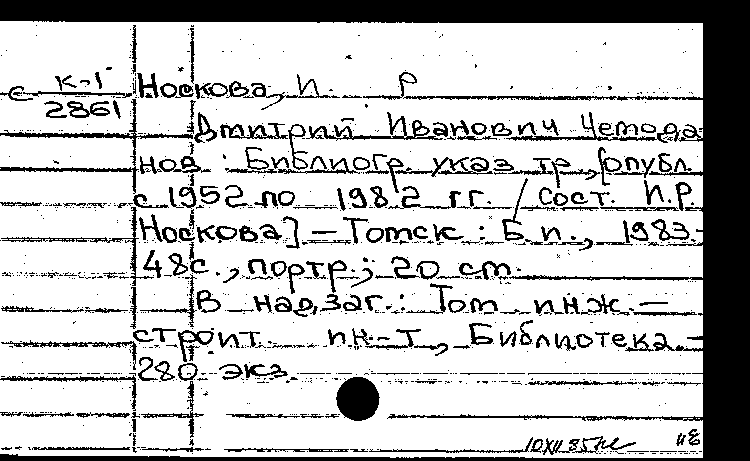 с К-1
2861
Носкова, И. Р
Дмитрий Иванович Чемода-
нов : Библиогр. указ. тр., [опубл.
с 1952 по 1982 гг. / Сост. И.Р.
Носкова] — Томск : Б.и., 1983.-
48с., портр.; 20 см.
В надзаг.: Том. инж.—
строит. ин-т, Библиотека.—
280 экз.
10 XII 85